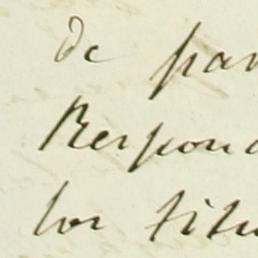 de par
Respond
los titu